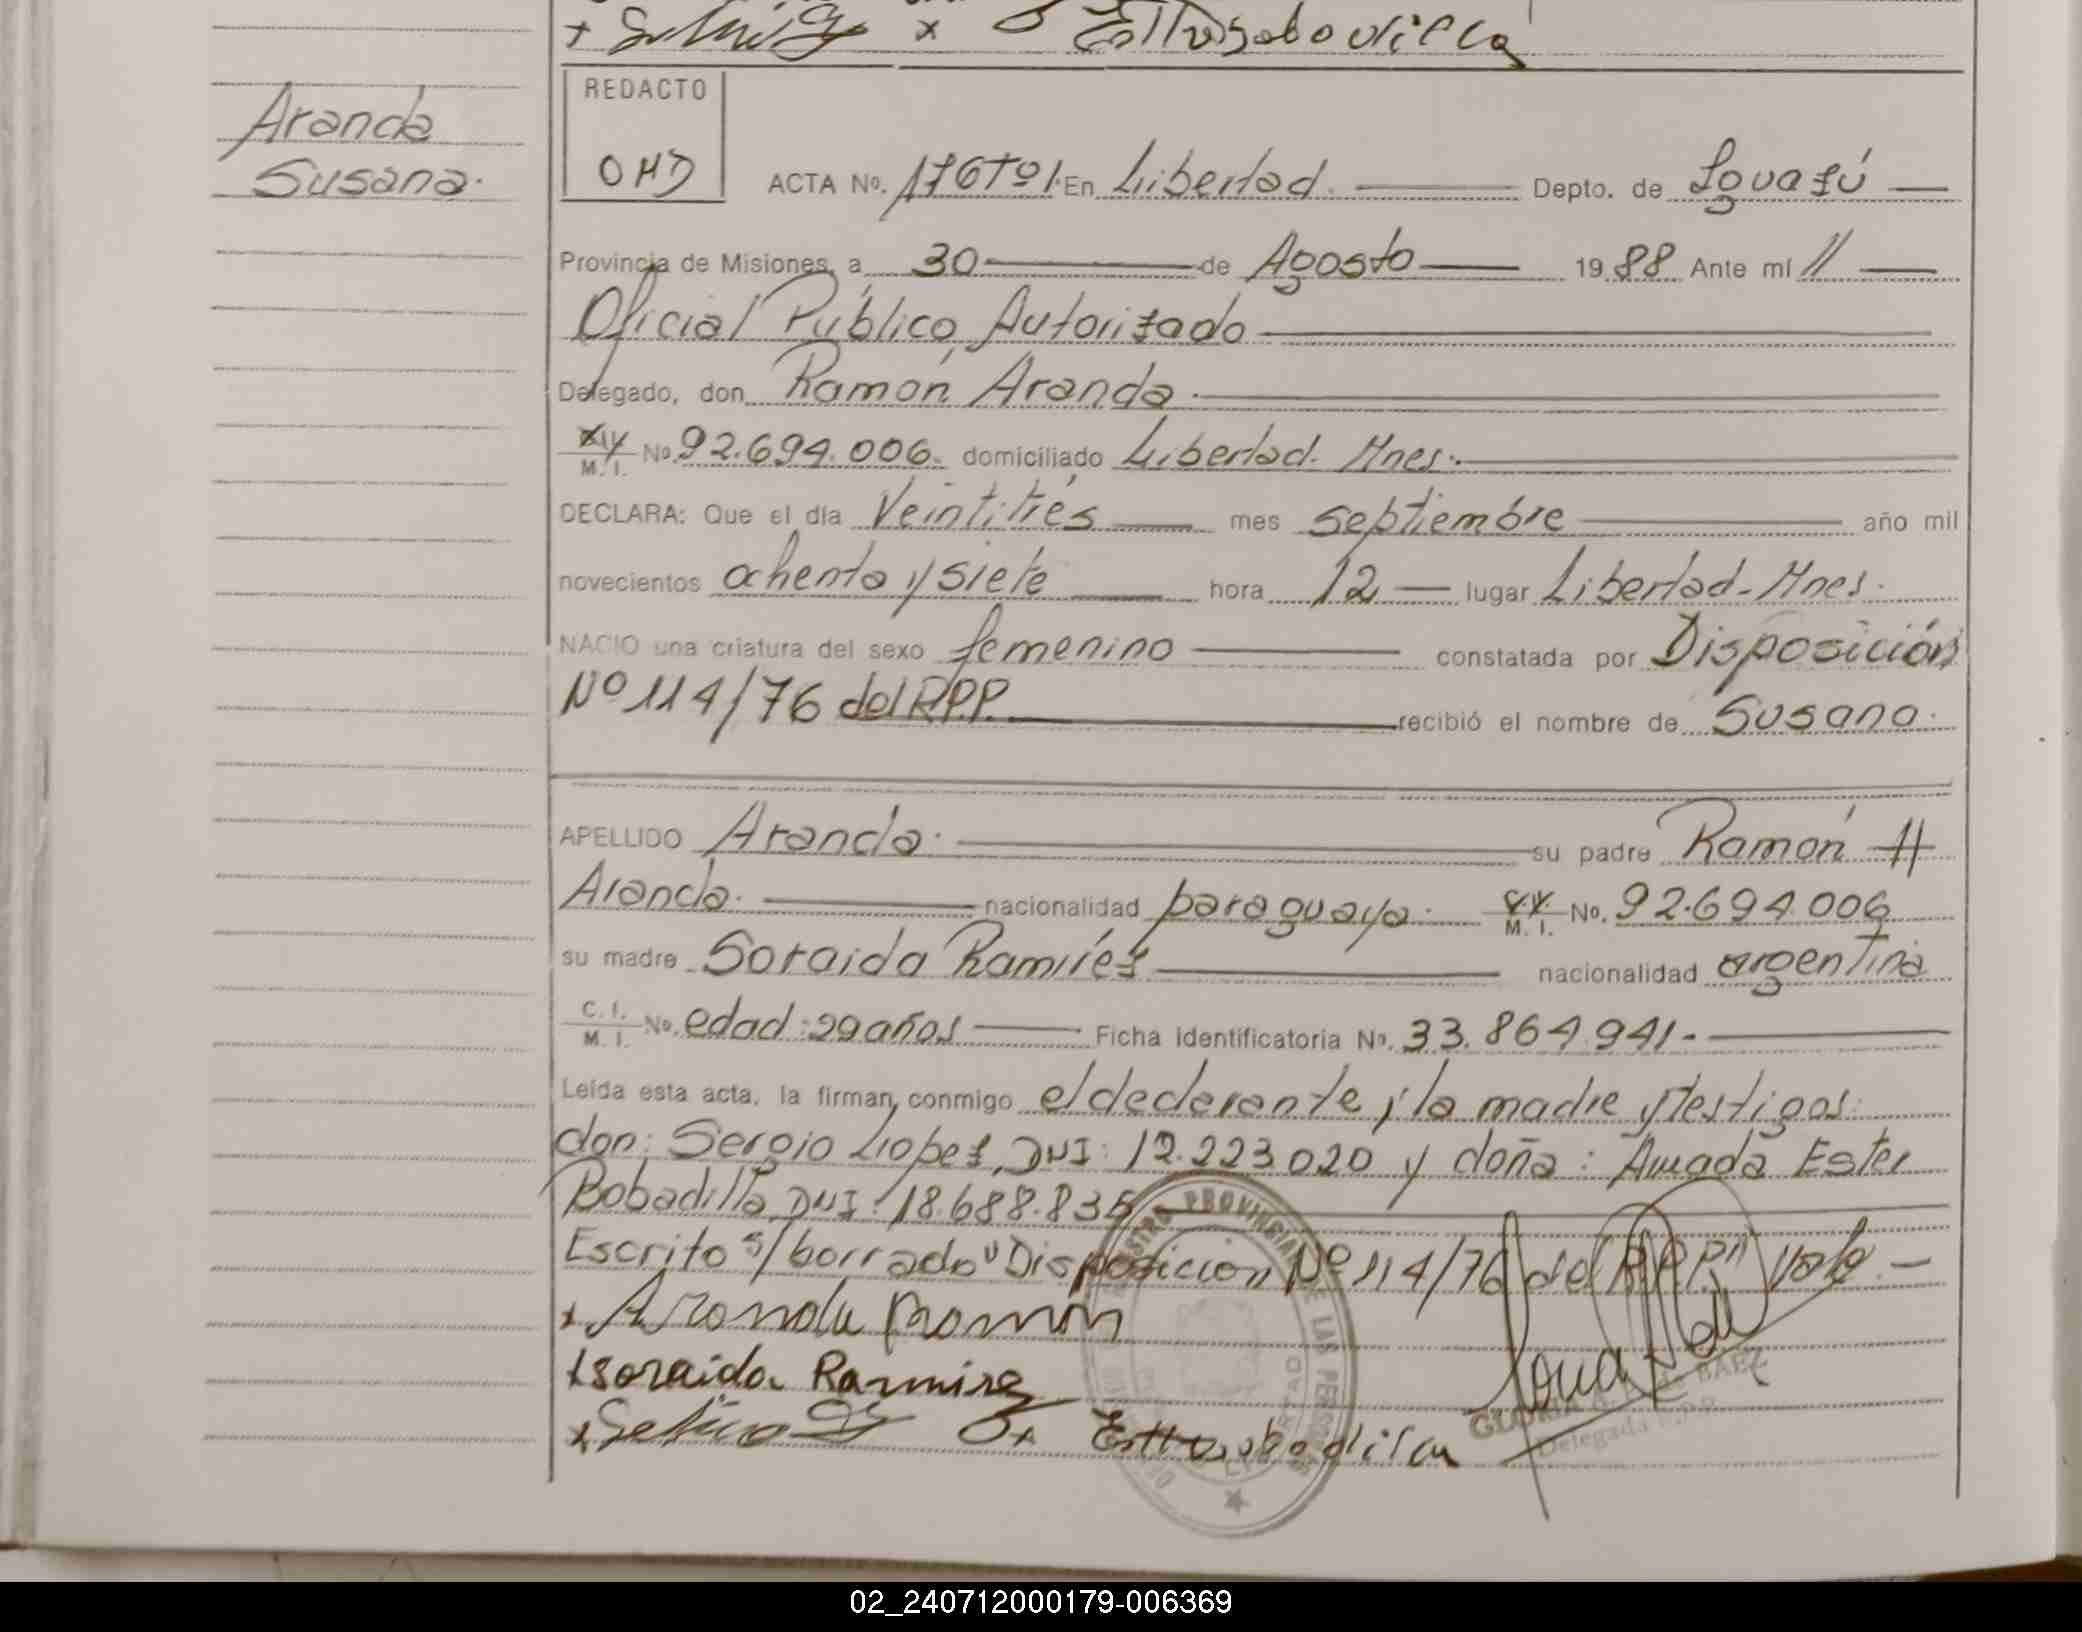 Aranda
Susana.
REDACTO
OHD
ACTA No. 176Tº1. En Libertad. Depto. de Iguazú
Provincia de Misiones, a 30 de Agosto 1988 Ante mí //
Oficial Público Autorizado
Delegado, don Ramón Aranda.
M. I. No. 92.694.006. domiciliado Libertad. Mnes.
DECLARA: Que el día Veintitrés mes septiembre año mil
novecientos ochenta y siete hora 12 lugar Libertad - Mnes.
NACIO una criatura del sexo femenino constatada por Disposición
Nº 114/76 del R.P.P. recibió el nombre de Susana.
APELLIDO Aranda. su padre Ramón //
Aranda. nacionalidad paraguaya. M. I. No. 92.694.006
su madre Soraida Ramírez nacionalidad argentina
C. I. M. I. No. edad: 29 años Ficha identificatoria No. 33.864.941.-
Leída esta acta, la firman conmigo el declarante, la madre y testigos:
don: Sergio Lopez, DNI: 12.223.020 y doña: Amada Ester
Bobadilla, DNI: 18.688.835
Escrito s/borrado "Disposición Nº 114/76 del R.P.P." Vale.-
x Aranda Ramon
x soraida Ramirez
GLORIA BAEZ
Delegada
REGISTRO PROVINCIAL DE LAS PERSONAS
02_240712000179-006369